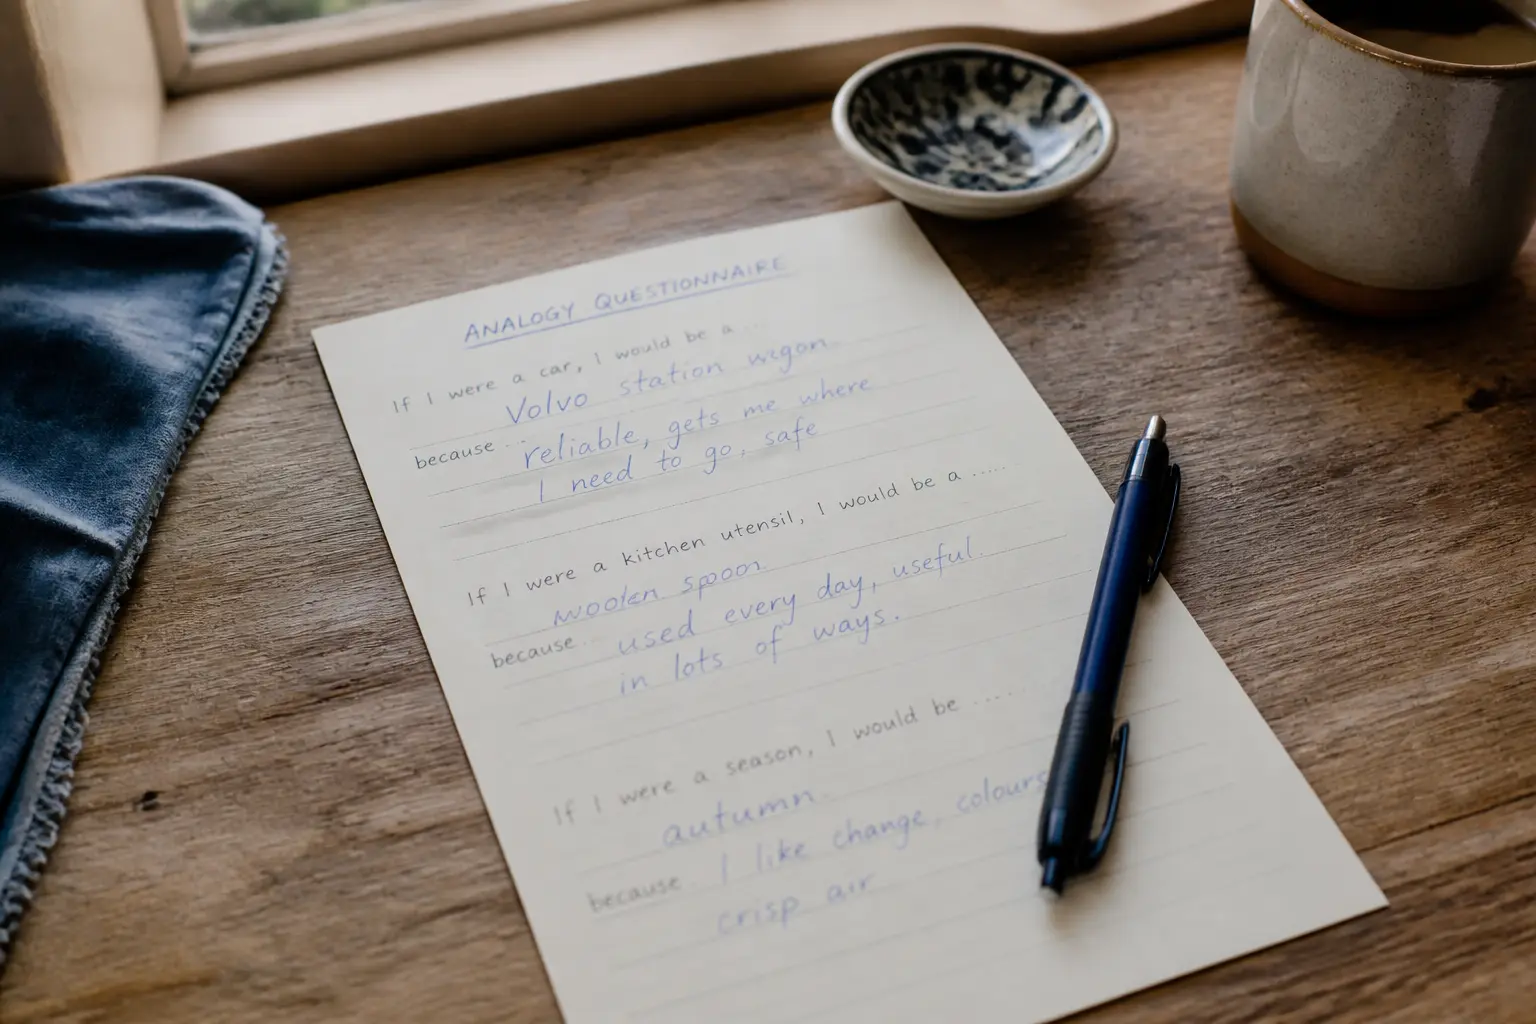 ANALOGY QUESTIONNAIRE
If I were a car, I would be a ...
Volvo station wagon.
because ... reliable, gets me where
I need to go, safe
If I were a kitchen utensil, I would be a .....
wooden spoon.
because... used every day, useful.
in lots of ways.
If I were a season, I would be .....
autumn.
because I like change, colours
crisp air